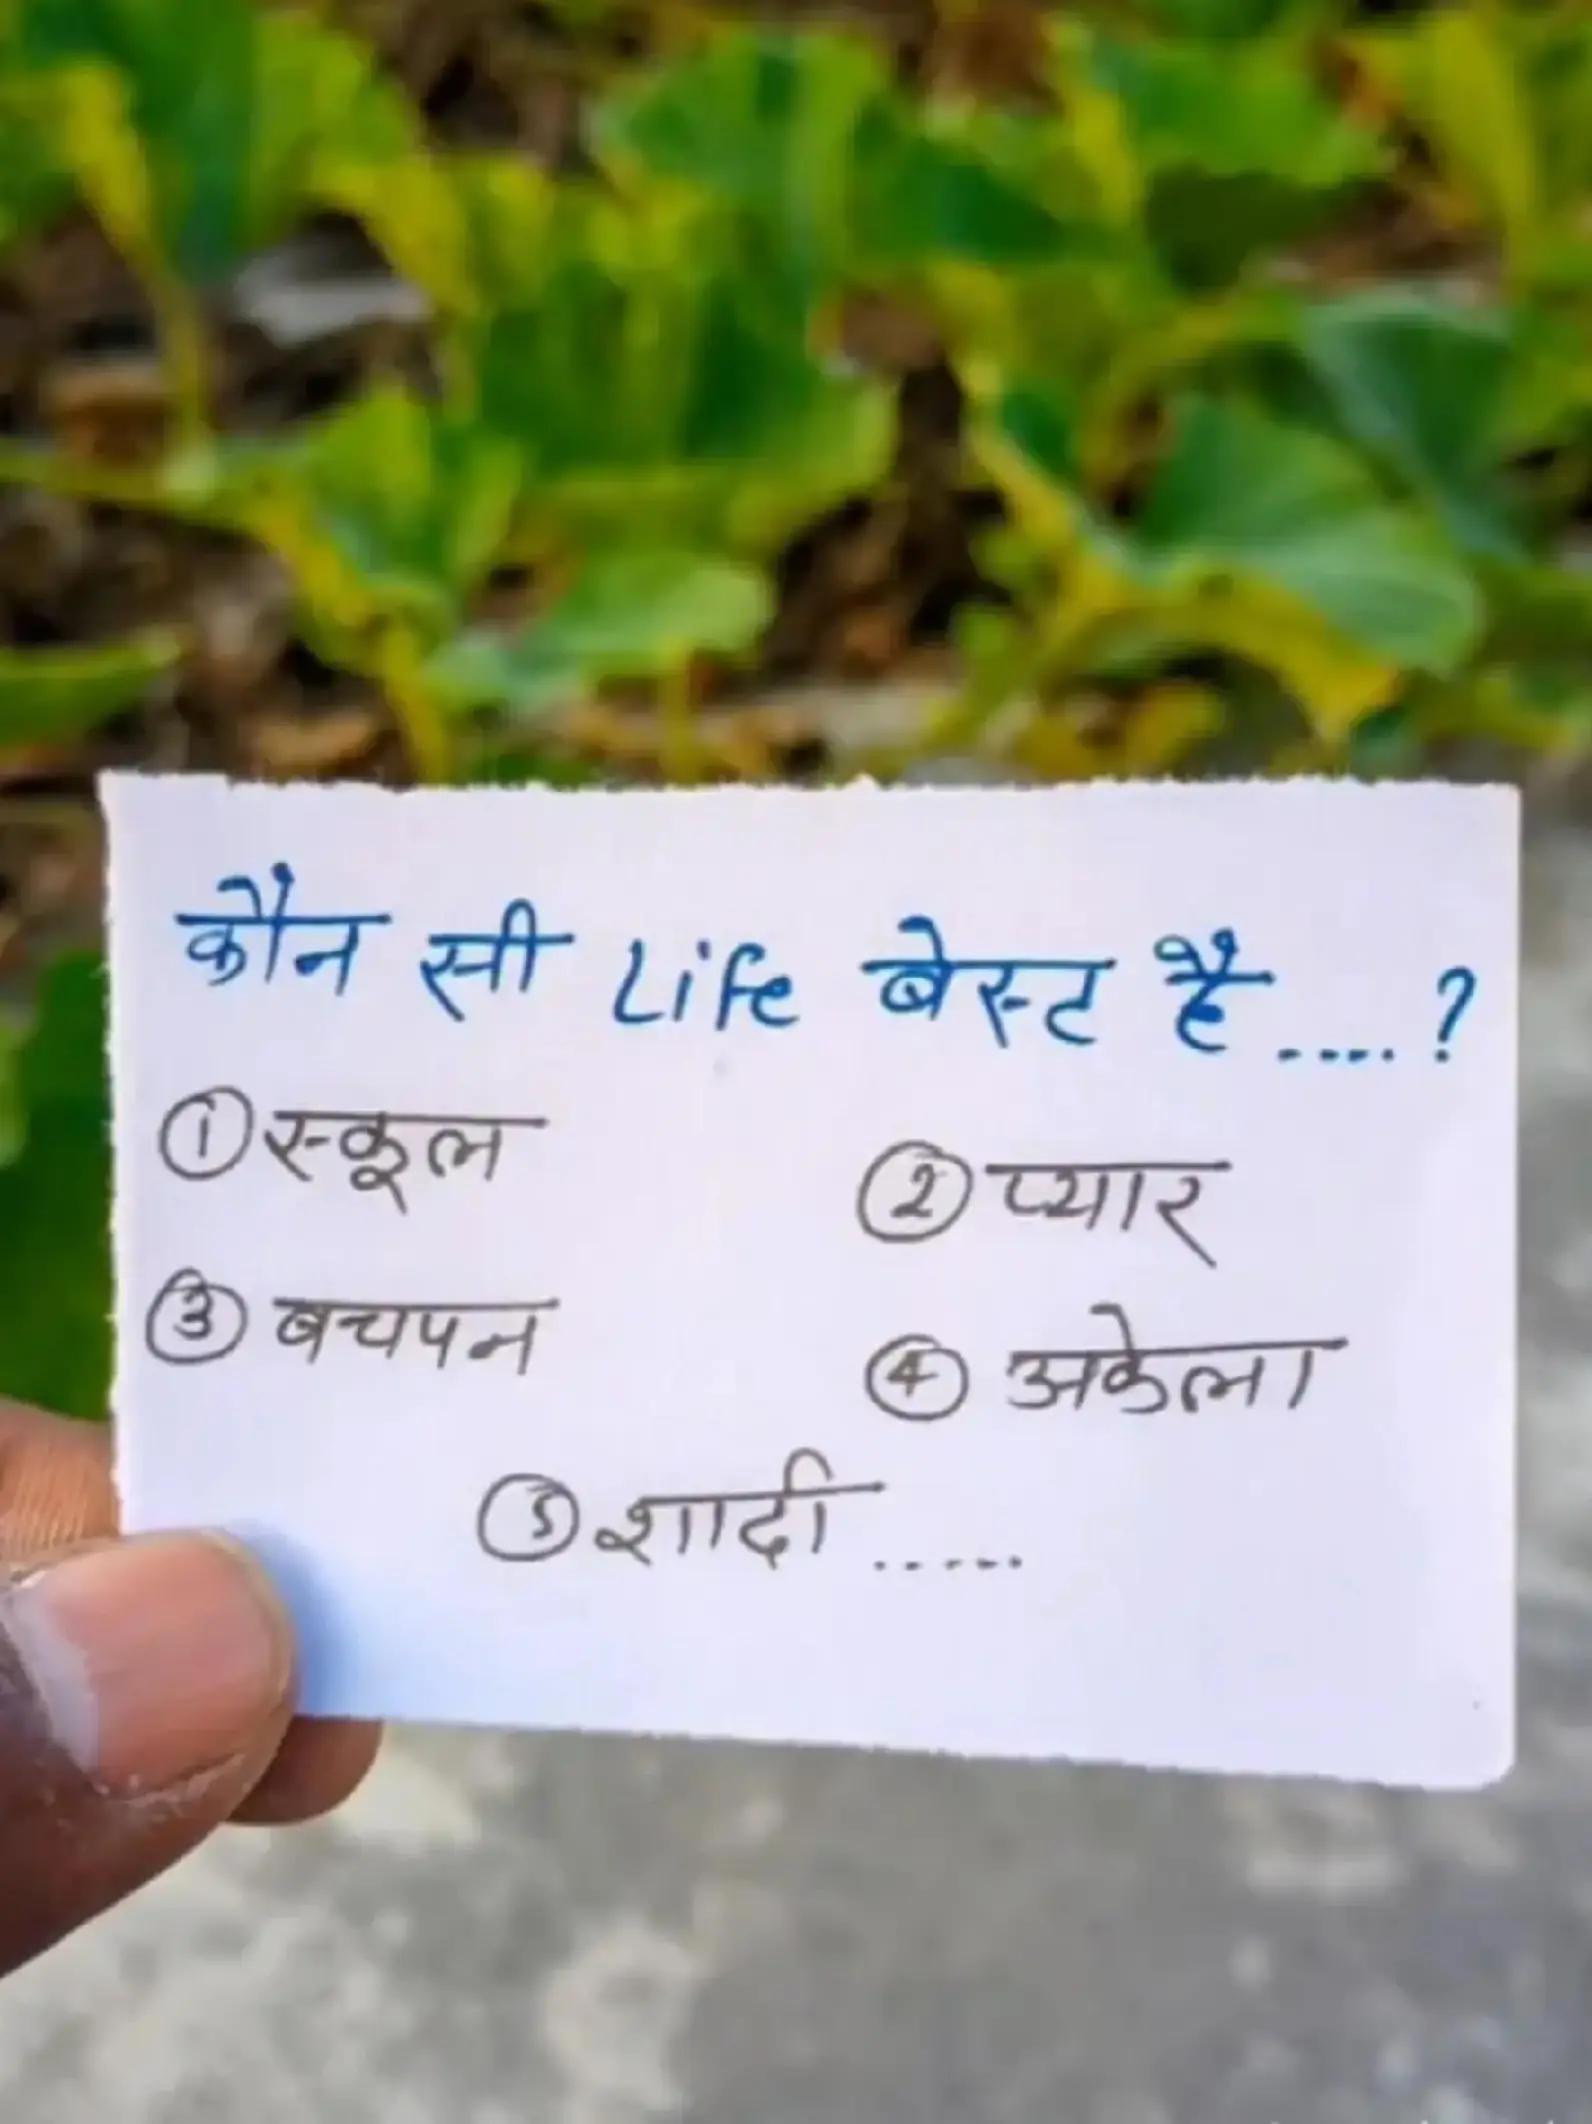 कौन सी Life बेस्ट है....?
① स्कूल ② प्यार
③ बचपन ④ अकेला
⑤ शादी.....